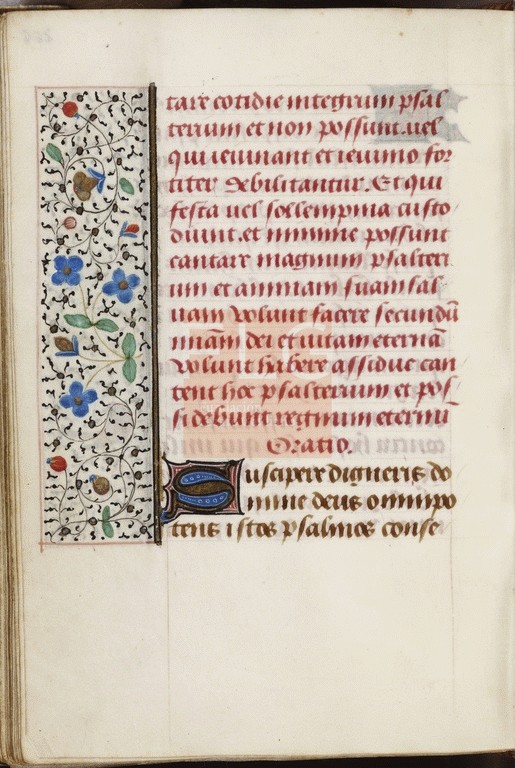 tare cotidie integrum psal
terium et non possunt. uel
qui ieiunant et ieiunio for
titer debilitantur. Et qui
festa uel sollempnia custo
diunt. et minime possunt
cantare magnum psalteri
um et animam suam sal
uam volunt facere secundū
misam dei et uitam eternā
volunt habere assidue can
tent hec psalterium et pos
sidebunt regnum eternū
Oratio.
Suscipere digneris do
mine deus omnipo
tens istos psalmos conse